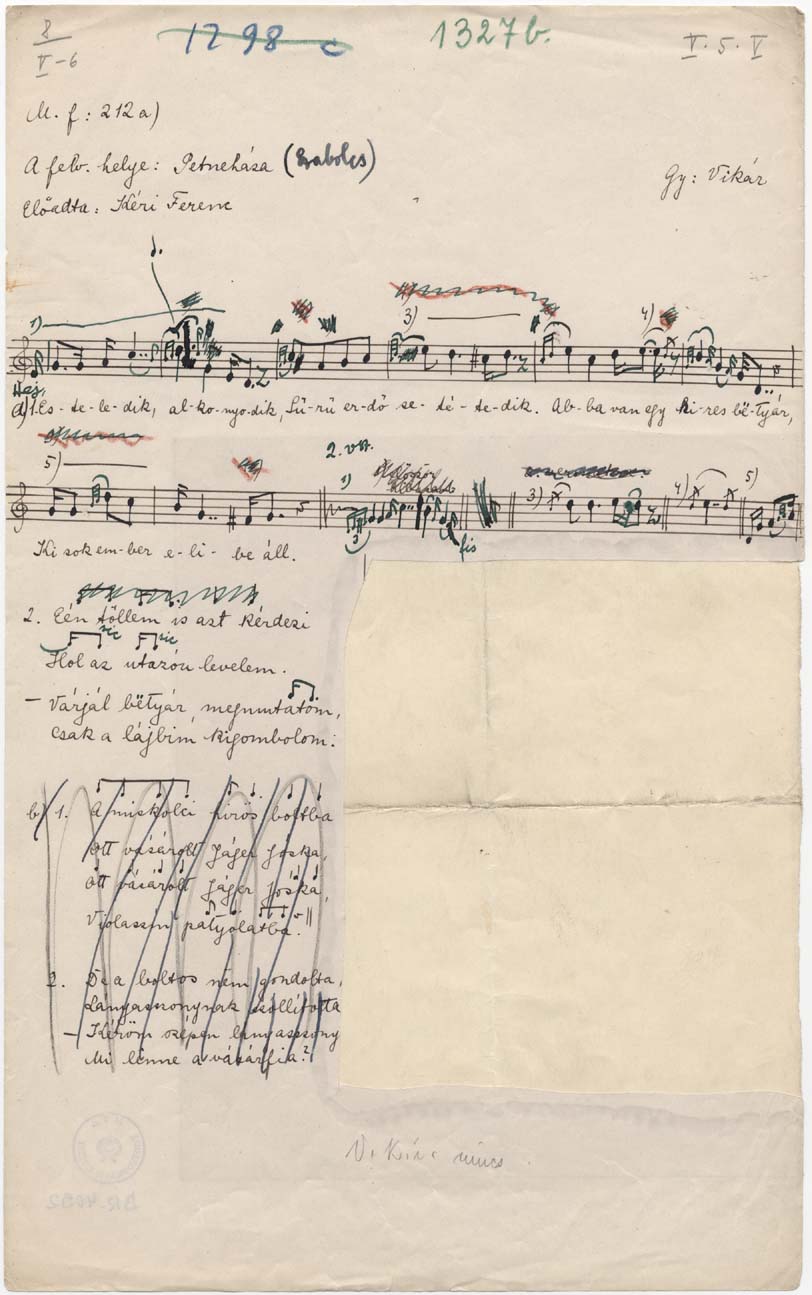 8
V-6
1298 c
1327 b.
V. 5. V
M. f: 212a)
A felv. helye: Petneháza (Szabolcs)
Gy: Vikár
Előadta: Kéri Ferenc
1) 3) 4)
Haj,
a) 1. Es-te-le-dik, al-ko-nyo-dik, Sü-rü er-dő se-té-te-dik. Ab-ba van egy hi-res bë-tyár,
5) 2. vsz. 1) 3) 4) 5)
3
fis
Ki sok em-ber e-li-be áll.
2. Eén töllem is azt kérdezi
sic sic
Hol az utazóu levelem.
– Várjál bëtyár, megmutatom,
Csak a lájbim kigombolom:
b) 1. A miskolci boltba
Ott vásárolt Jáger Jóska,
Ott vásárolt Jáger Jóska,
Violaszin patyolatba.
2. De a boltos nem gondolta,
Lányasszonynak szóllította
– Kéröm szépen lányasszony
Mi lënne a vásárfia?
nincs